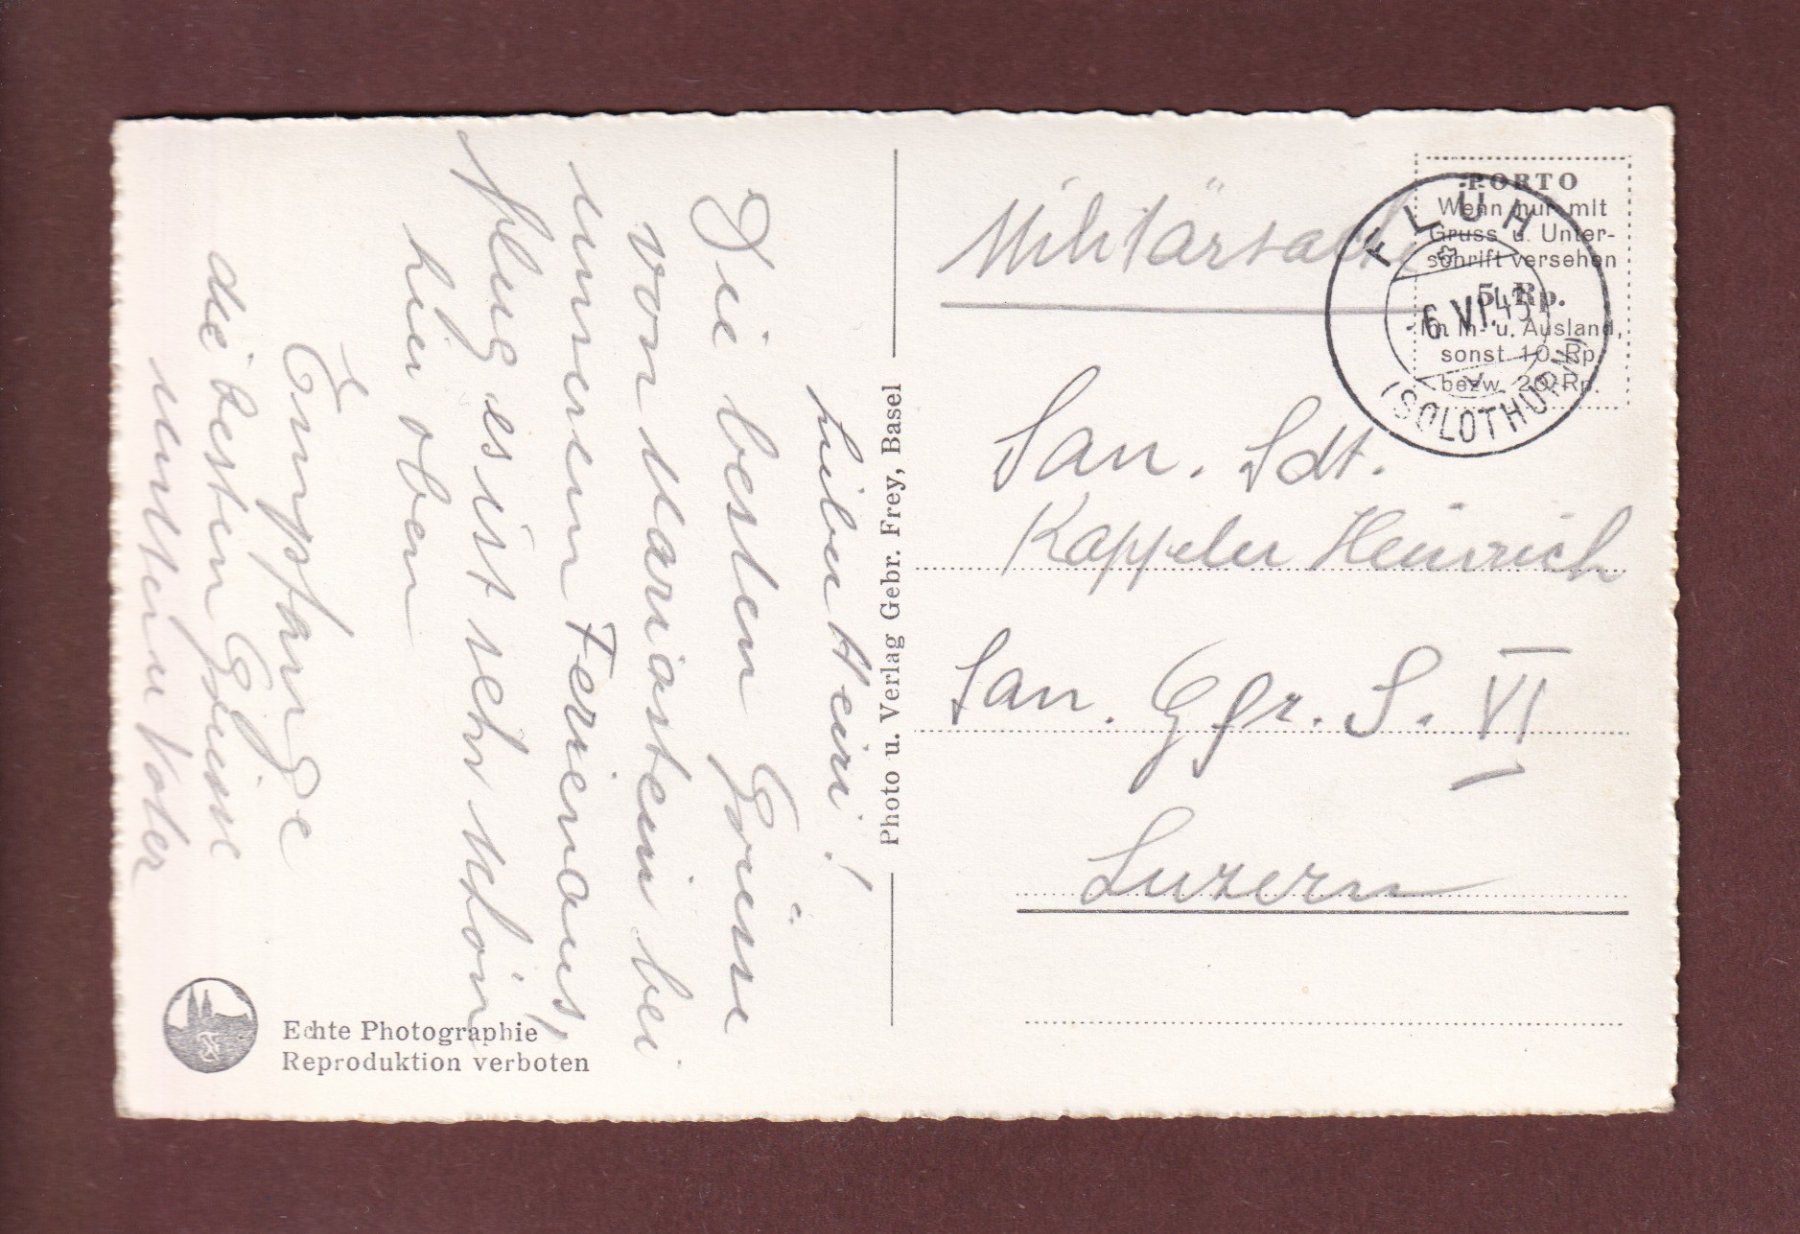 Lieber Heiri!
Die besten Grüsse
von Mariastein bei
unserem Ferienaus,
flug es ist sehr schön
hier oben
Empfange
die besten Grüsse
von Vater
Photo u. Verlag Gebr. Frey, Basel
Echte Photographie
Reproduktion verboten
Militärsache
PORTO
Wenn nur mit
Gruss u. Unter-
schrift versehen
5 Rp.
im In- u. Ausland,
sonst 10 Rp.
bezw. 20 Rp.
FLÜH
6.VI.43
(SOLOTHURN)
San. Sdt.
Kappeler Heinrich
San. Gfr. S. VI
Luzern